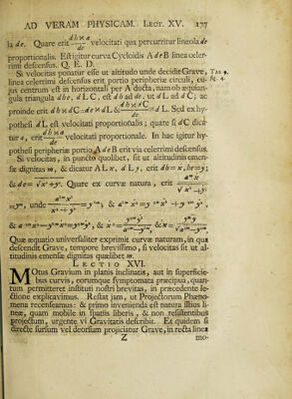 AD VERAM PHYSICAM. Lect. XV. 177
la de. Quare erit dh×a/de velocitati qua percurritur lineola de
proportionalis. Est igitur curva Cycloidis A de B linea celer-
rimi descensus. Q. E. D.
Si velocitas ponatur esse ut altitudo unde decidit Grave,
linea celerrimi descensus erit portio peripheriæ circuli, cu-
jus centrum est in horizontali per A ducta, nam ob æquian-
gula triangula dhe, dLC, est dh ad de, ut dL ad dC; ac
proinde erit dh×dC = de×dL & dh×dC/de = dL. Sed ex hy-
pothesi dL est velocitati proportionalis; quare si dC dica-
tur a, erit dh×a/de velocitati proportionale. In hac igitur hy-
pothesi peripheriæ portio A de B erit via celerrimi descensus.
Si velocitas, in puncto quolibet, sit ut altitudinis emen-
sæ dignitas m, & dicatur AL x, dL y, erit
& de = √ẋ²+ẏ². Quare ex curvæ natura, erit
Quæ æquatio universaliter exprimit curvæ naturam, in qua
descendit Grave, tempore brevissimo, si velocitas sit ut al-
titudinis emensæ dignitas quælibet m.
LECTIO XVI.
Motus Gravium in planis inclinatis, aut in superficie-
bus curvis, eorumque Symptomata præcipua, quan-
tum permitteret instituti nostri brevitas, in præcedente le-
ctione explicavimus. Restat jam, ut Projectorum Phæno-
mena recenseamus: & primo invenienda est natura istius li-
neæ, quam mobile in spatiis liberis, & non resistentibus
projectum, urgente vi Gravitatis describit. Et quidem si
directe sursum vel deorsum projiciatur Grave, in recta linea
Z mo-